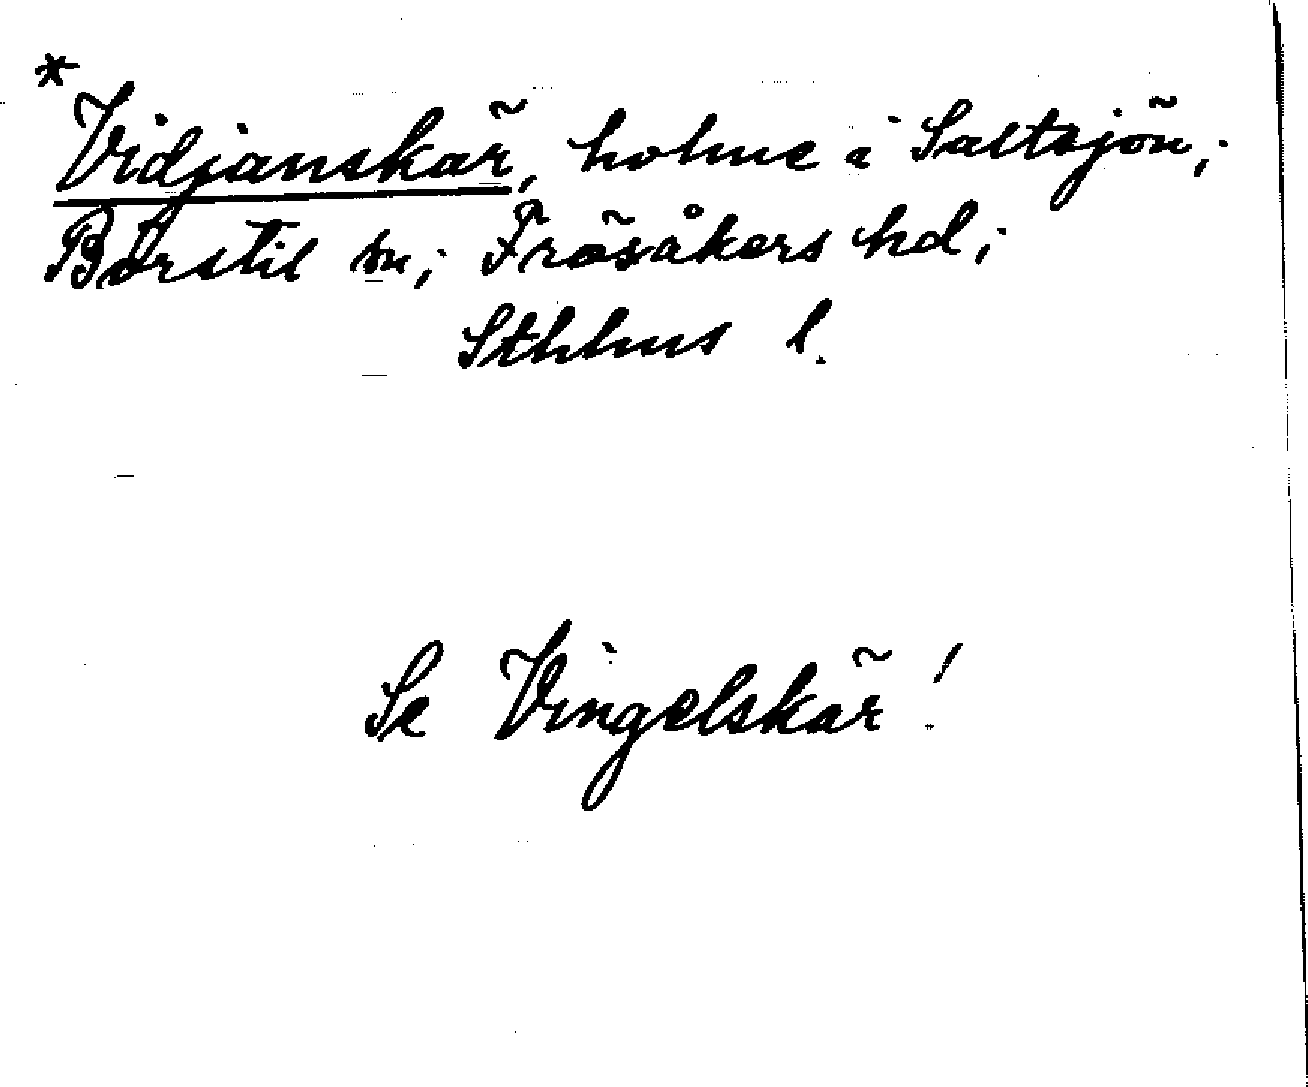 * Vidjanskär, holme i Saltsjön;
Börstil sn; Frösåkers hd;
Sthlms l.
Se Vingelskär!